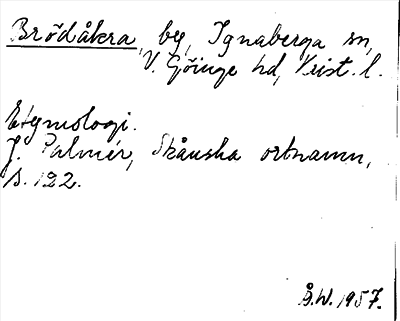 Brödåkra, by, Ignaberga sn,
V. Göinge hd, Krist. l.
Etymologi.
J. Palmér, Skånska ortnamn,
s. 122.
Å.W. 1957.